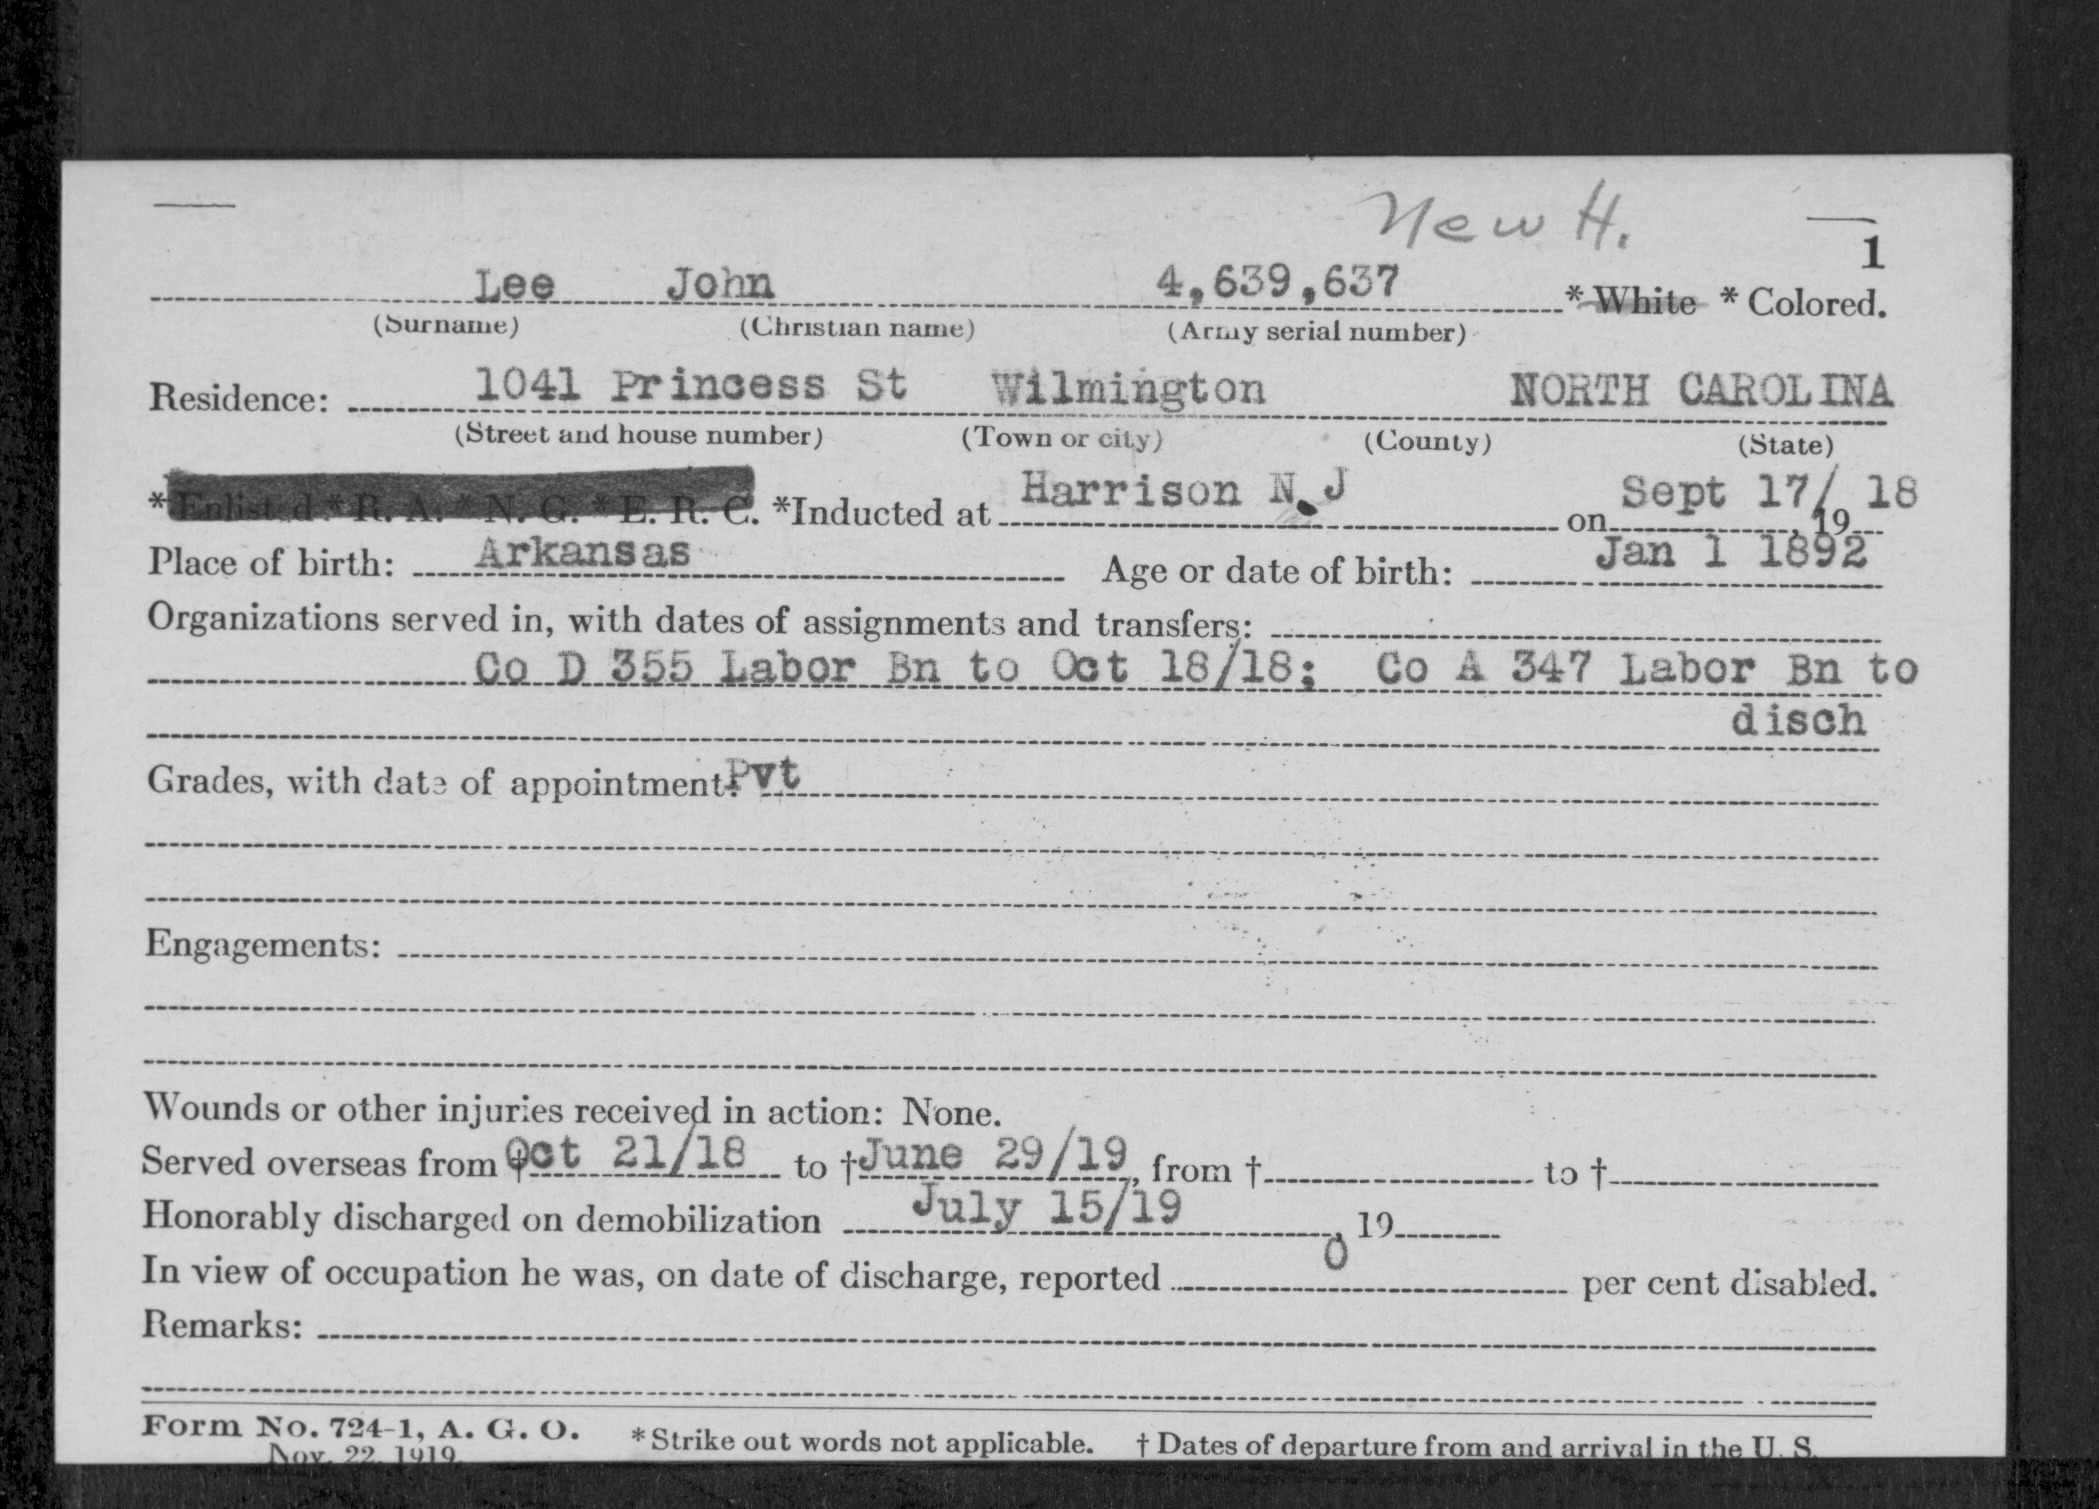 New H.
1
Lee John 4,639,637 * White * Colored.
(Surname) (Christian name) (Army serial number)
Residence: 1041 Princess St Wilmington NORTH CAROLINA
(Street and house number) (Town or city) (County) (State)
*Enlisted * R. A. * N. G. * E. R. C. *Inducted at Harrison N.J on Sept 17/, 19 18
Place of birth: Arkansas Age or date of birth: Jan 1 1892
Organizations served in, with dates of assignments and transfers:
Co D 355 Labor Bn to Oct 18/18; Co A 347 Labor Bn to
disch
Grades, with date of appointment: Pvt
Engagements:
Wounds or other injuries received in action: None.
Served overseas from † Oct 21/18 to † June 29/19, from † to †
Honorably discharged on demobilization July 15/19, 19
In view of occupation he was, on date of discharge, reported 0 per cent disabled.
Remarks:
Form No. 724-1, A. G. O. * Strike out words not applicable. † Dates of departure from and arrival in the U. S.
Nov. 22, 1919.